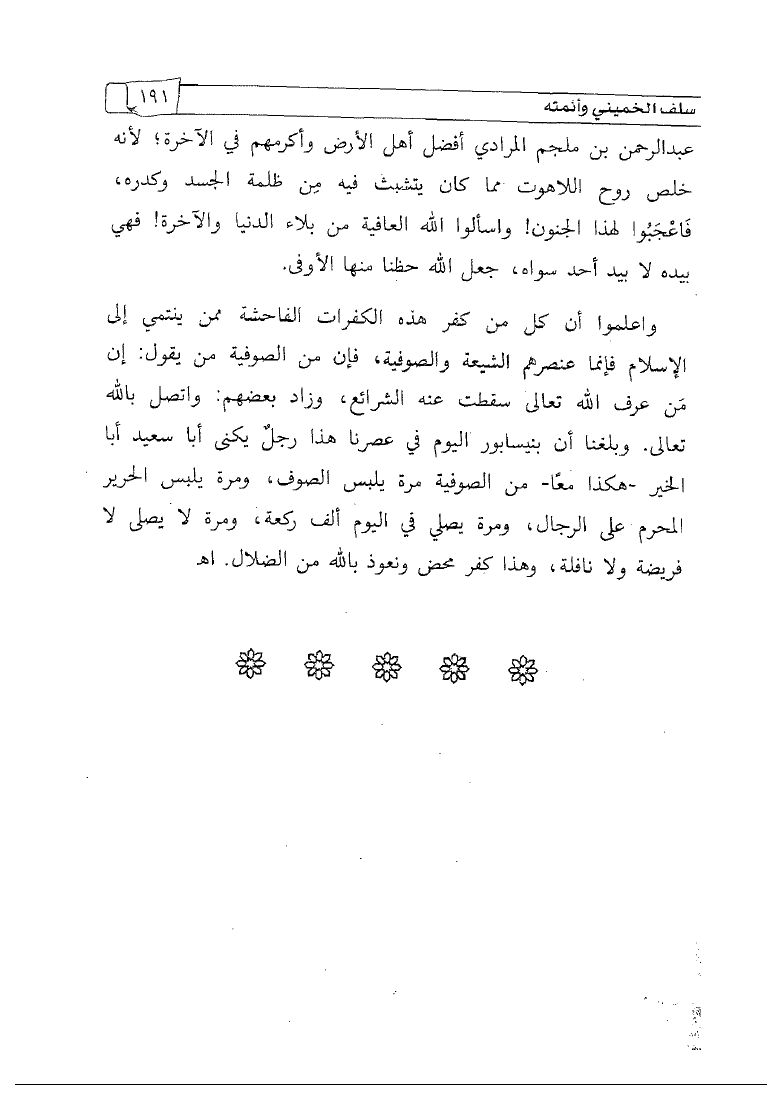 سلف الخميني وأئمته
١٩١
عبدالرحمن بن ملجم المرادي أفضل أهل الأرض وأكرمهم في الآخرة؛ لأنه
خلص روح اللاهوت مما كان يتشبث فيه مِن ظلمة الجسد وكدره،
فَاعْجَبُوا لهذا الجنون! واسألوا الله العافية من بلاء الدنيا والآخرة! فهي
بيده لا بيد أحد سواه، جعل الله حظنا منها الأوفى.
واعلموا أن كل من كفر هذه الكفرات الفاحشة ممن ينتمي إلى
الإسلام فإنما عنصرهم الشيعة والصوفية، فإن من الصوفية من يقول: إن
مَن عرف الله تعالى سقطت عنه الشرائع، وزاد بعضهم: واتصل بالله
تعالى. وبلغنا أن بنيسابور اليوم في عصرنا هذا رجلٌ يكنى أبا سعيد أبا
الخير -هكذا معًا- من الصوفية مرة يلبس الصوف، ومرة يلبس الحرير
المحرم على الرجال، ومرة يصلي في اليوم ألف ركعة، ومرة لا يصلى لا
فريضة ولا نافلة، وهذا كفر محض ونعوذ بالله من الضلال. اهـ